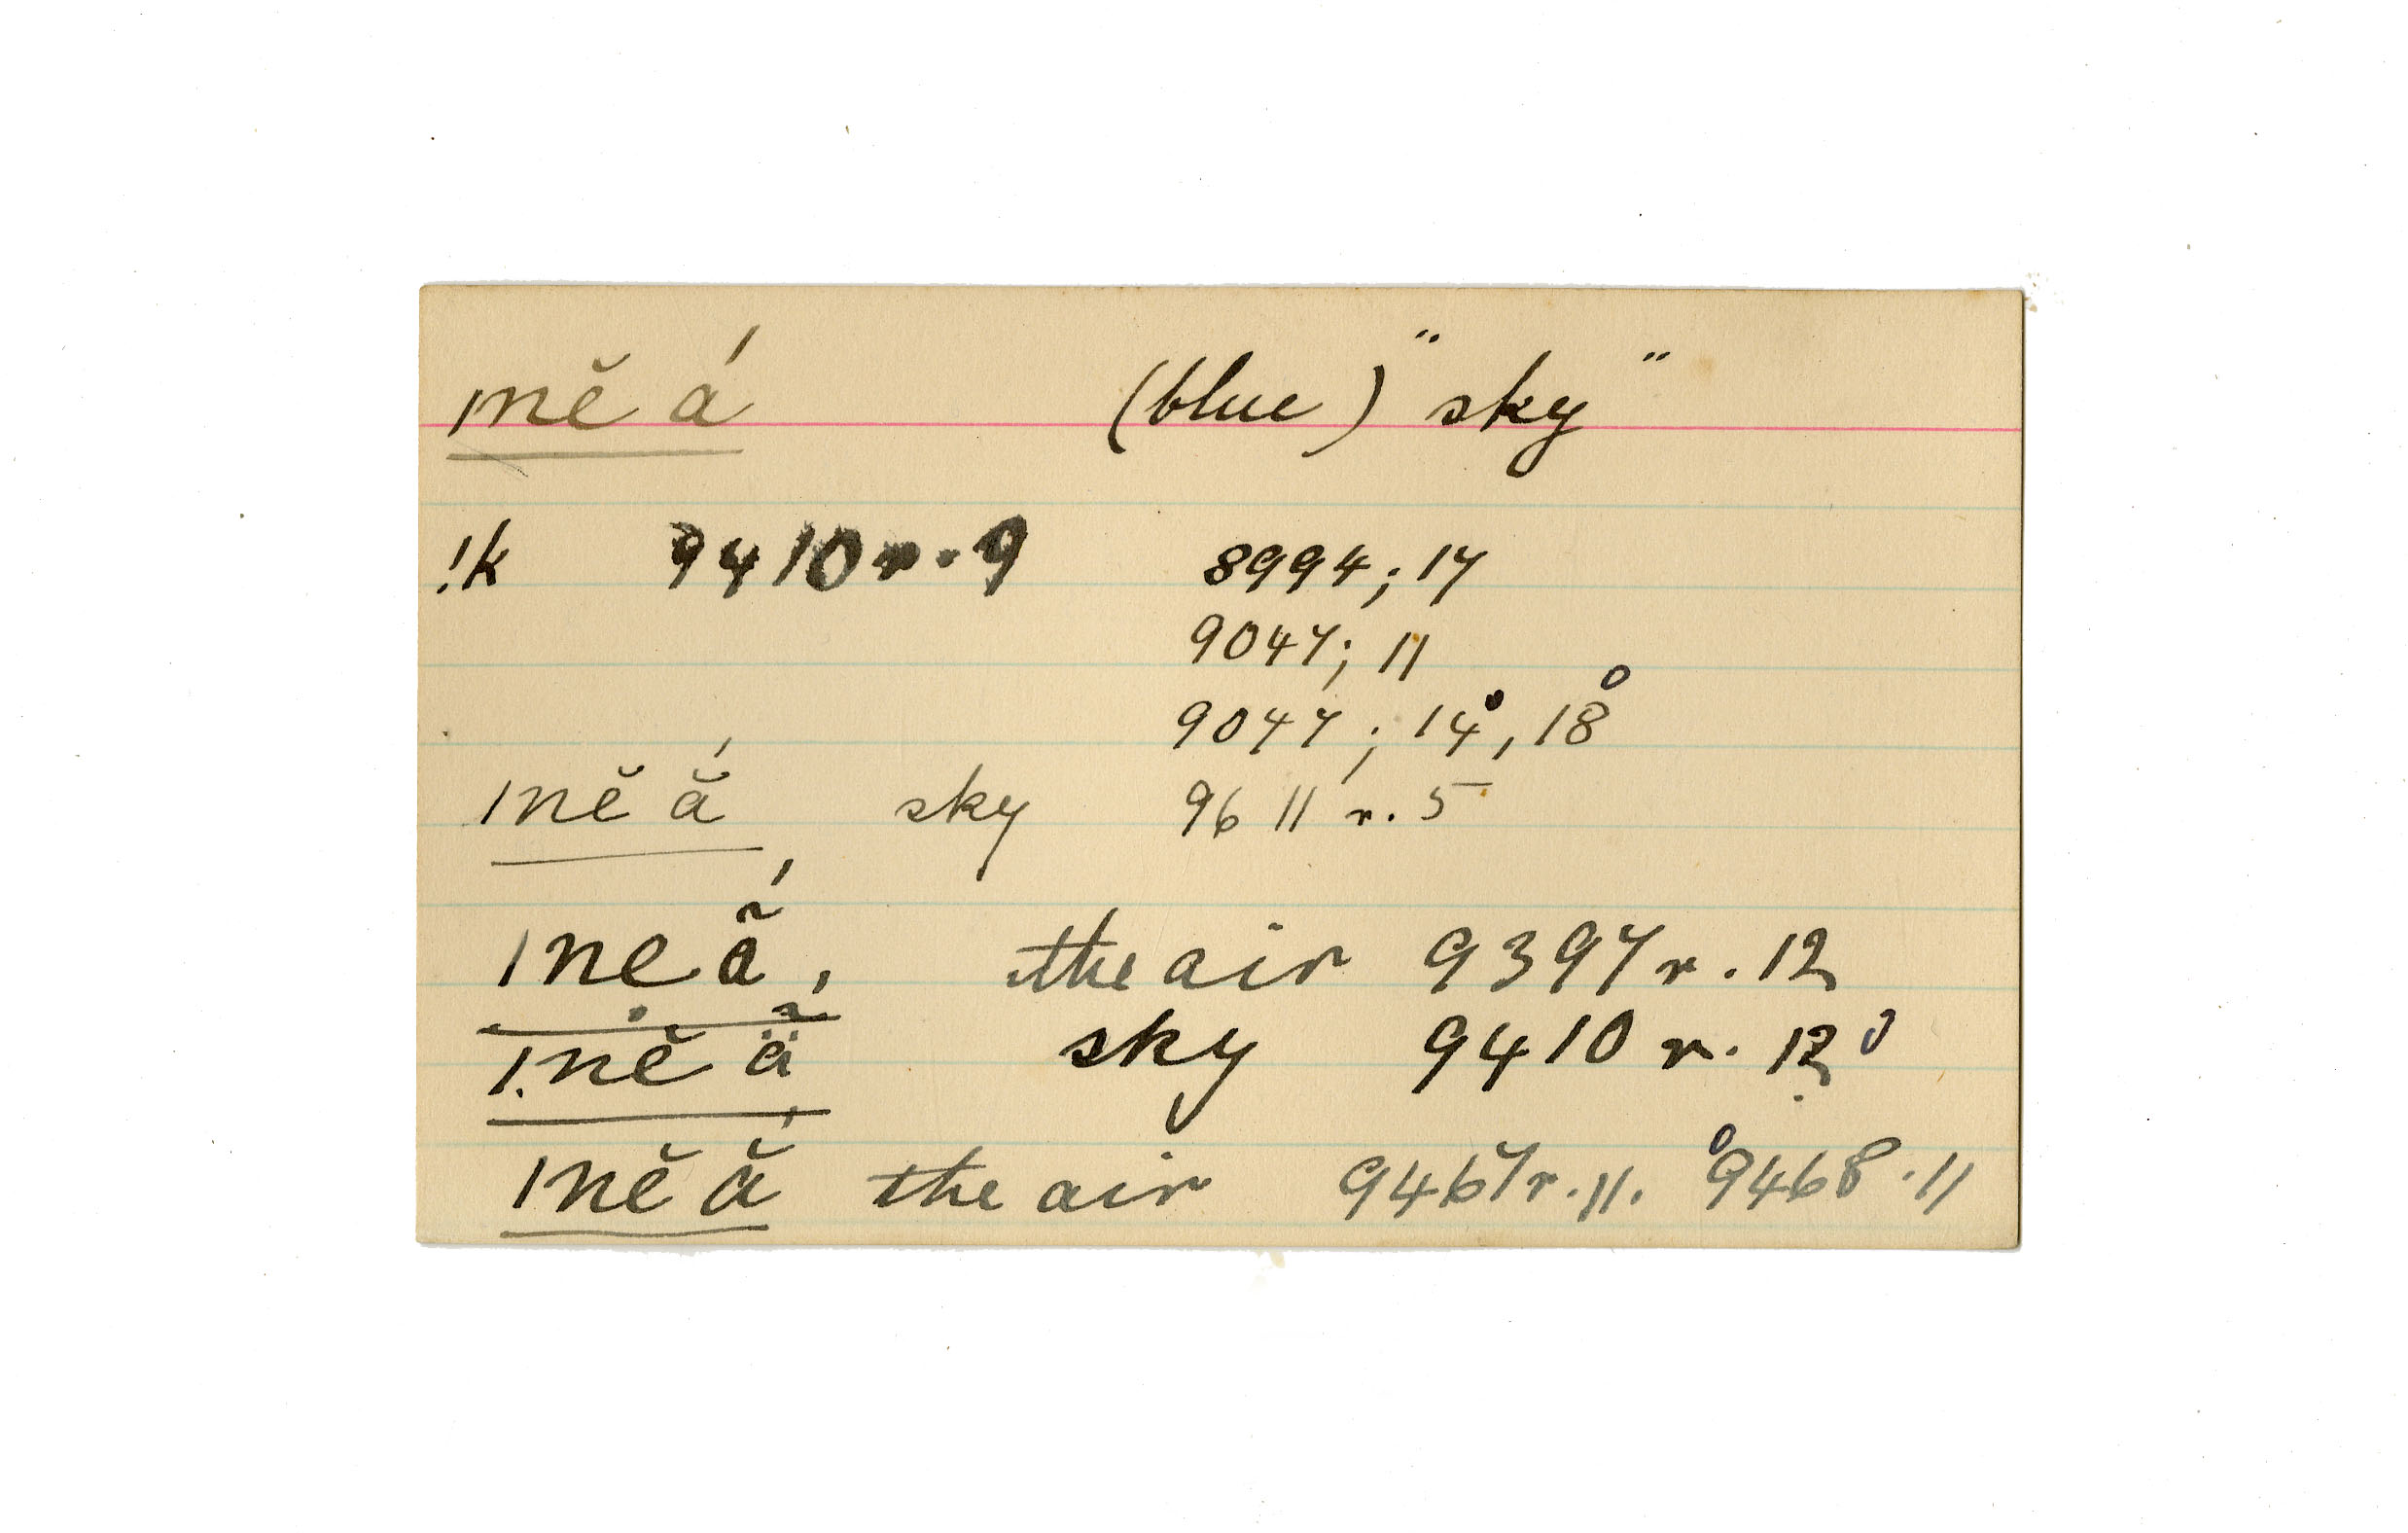 ꞁnĕ á (blue) "sky"
!k 9410 r. 9 8994; 17
9047; 11
9047; 14⁰, 18⁰
ꞁnĕ ắ sky 9611 r. 5
ꞁnẹ ã́ the air 9397 r. 12
ꞁ.nĕ ä̃́ sky 9410 r. 12⁰
ꞁnĕ ắ the air 9467 r. 11. ⁰9468. 11